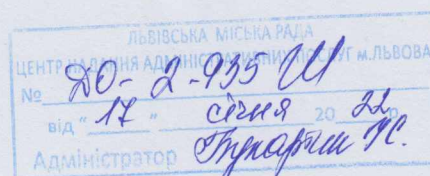 ЛЬВІВСЬКА МІСЬКА РАДА
ЦЕНТР НАДАННЯ АДМІНІСТРАТИВНИХ ПОСЛУГ м.ЛЬВОВА
№ ДО-2-935
від "17" січня 2022 р.
Адміністратор